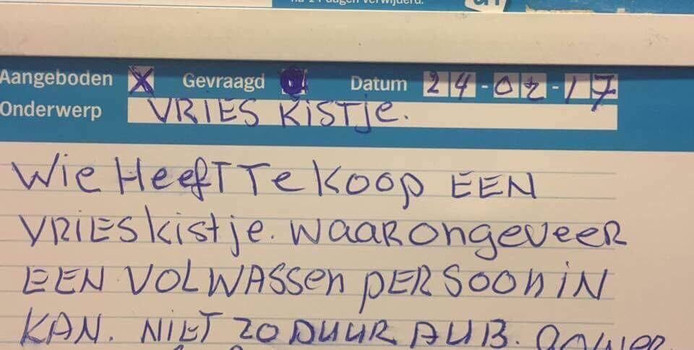 na 14 dagen verwijderd.
Aangeboden X Gevraagd Datum 24-02-17
Onderwerp VRIESKISTje.
Wie HeefT Te KOOP EEN
VRIESkistje. WAARONgeVEER
EEN VOLWASSEn PERSOONIN
KAN. NIET ZO DUUR AUB.